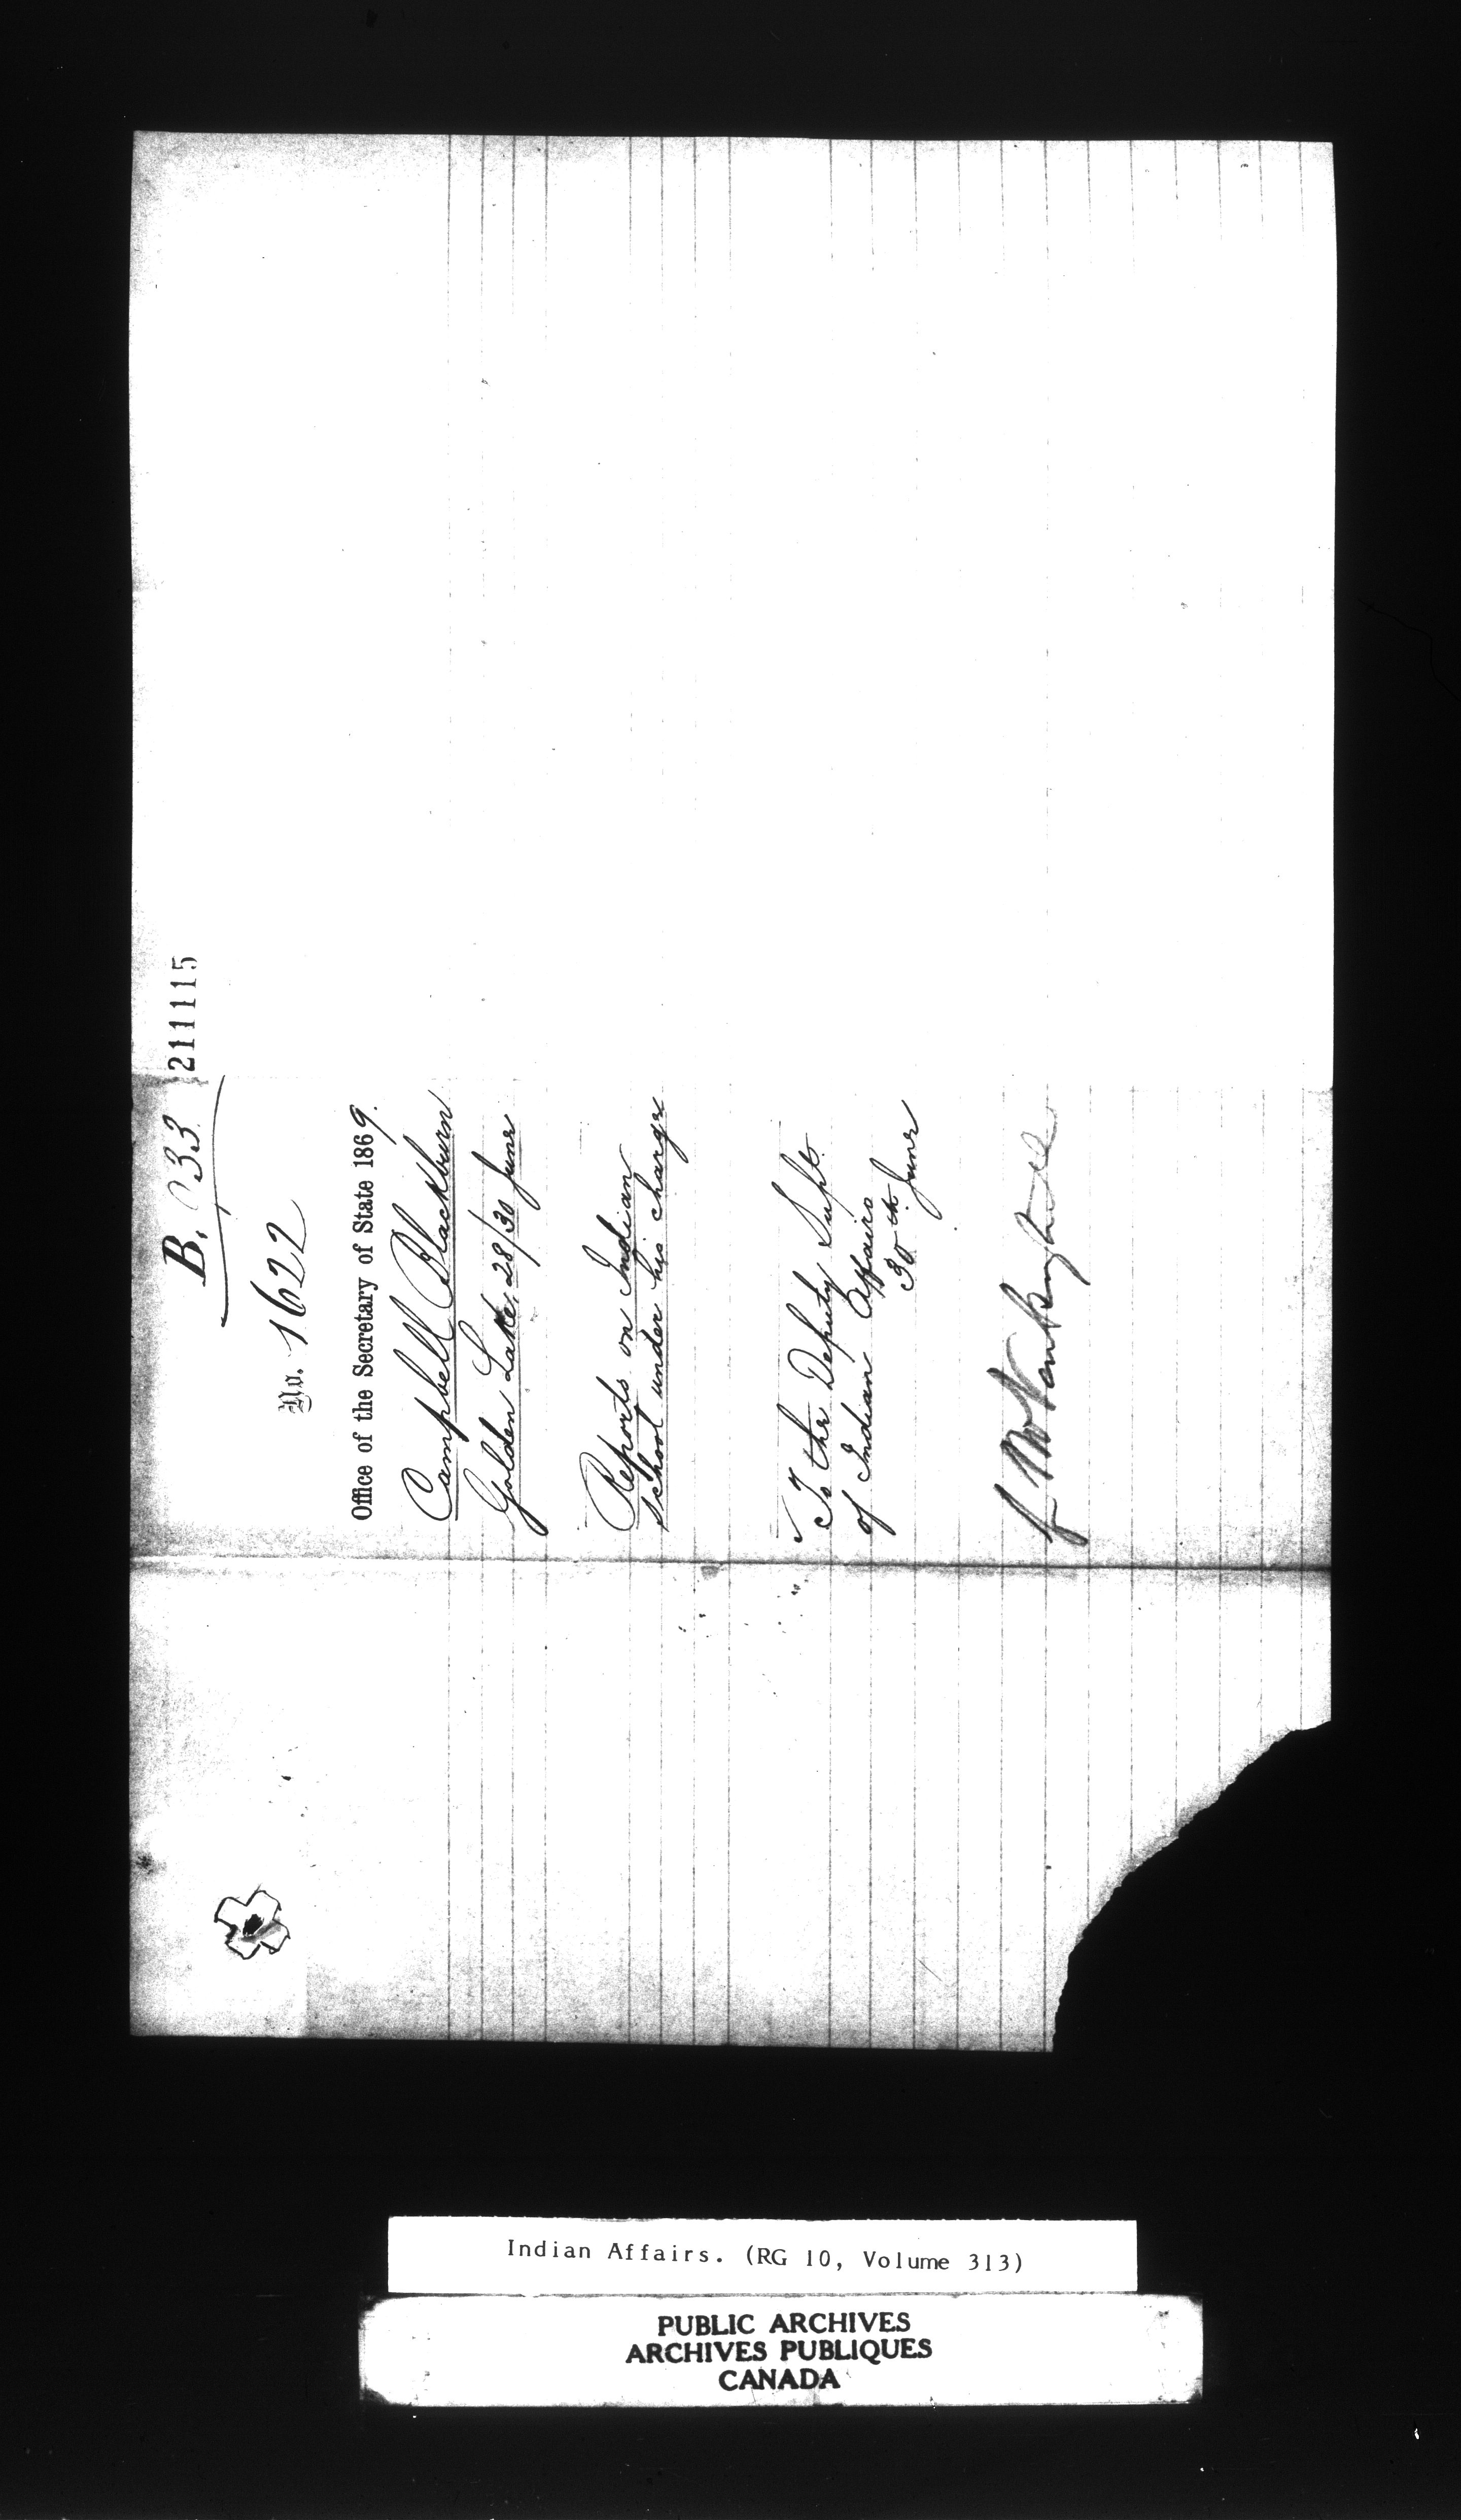 B. 33
211115
No. 1622
Office of the Secretary of State 1869.
Campbell Blackburn
Golden Lake, 28/30 June
Reports on Indian
school under his charge
To the Deputy Supt.
of Indian Affairs
30th June
Indian Affairs. (RG 10, Volume 313)
PUBLIC ARCHIVES
ARCHIVES PUBLIQUES
CANADA